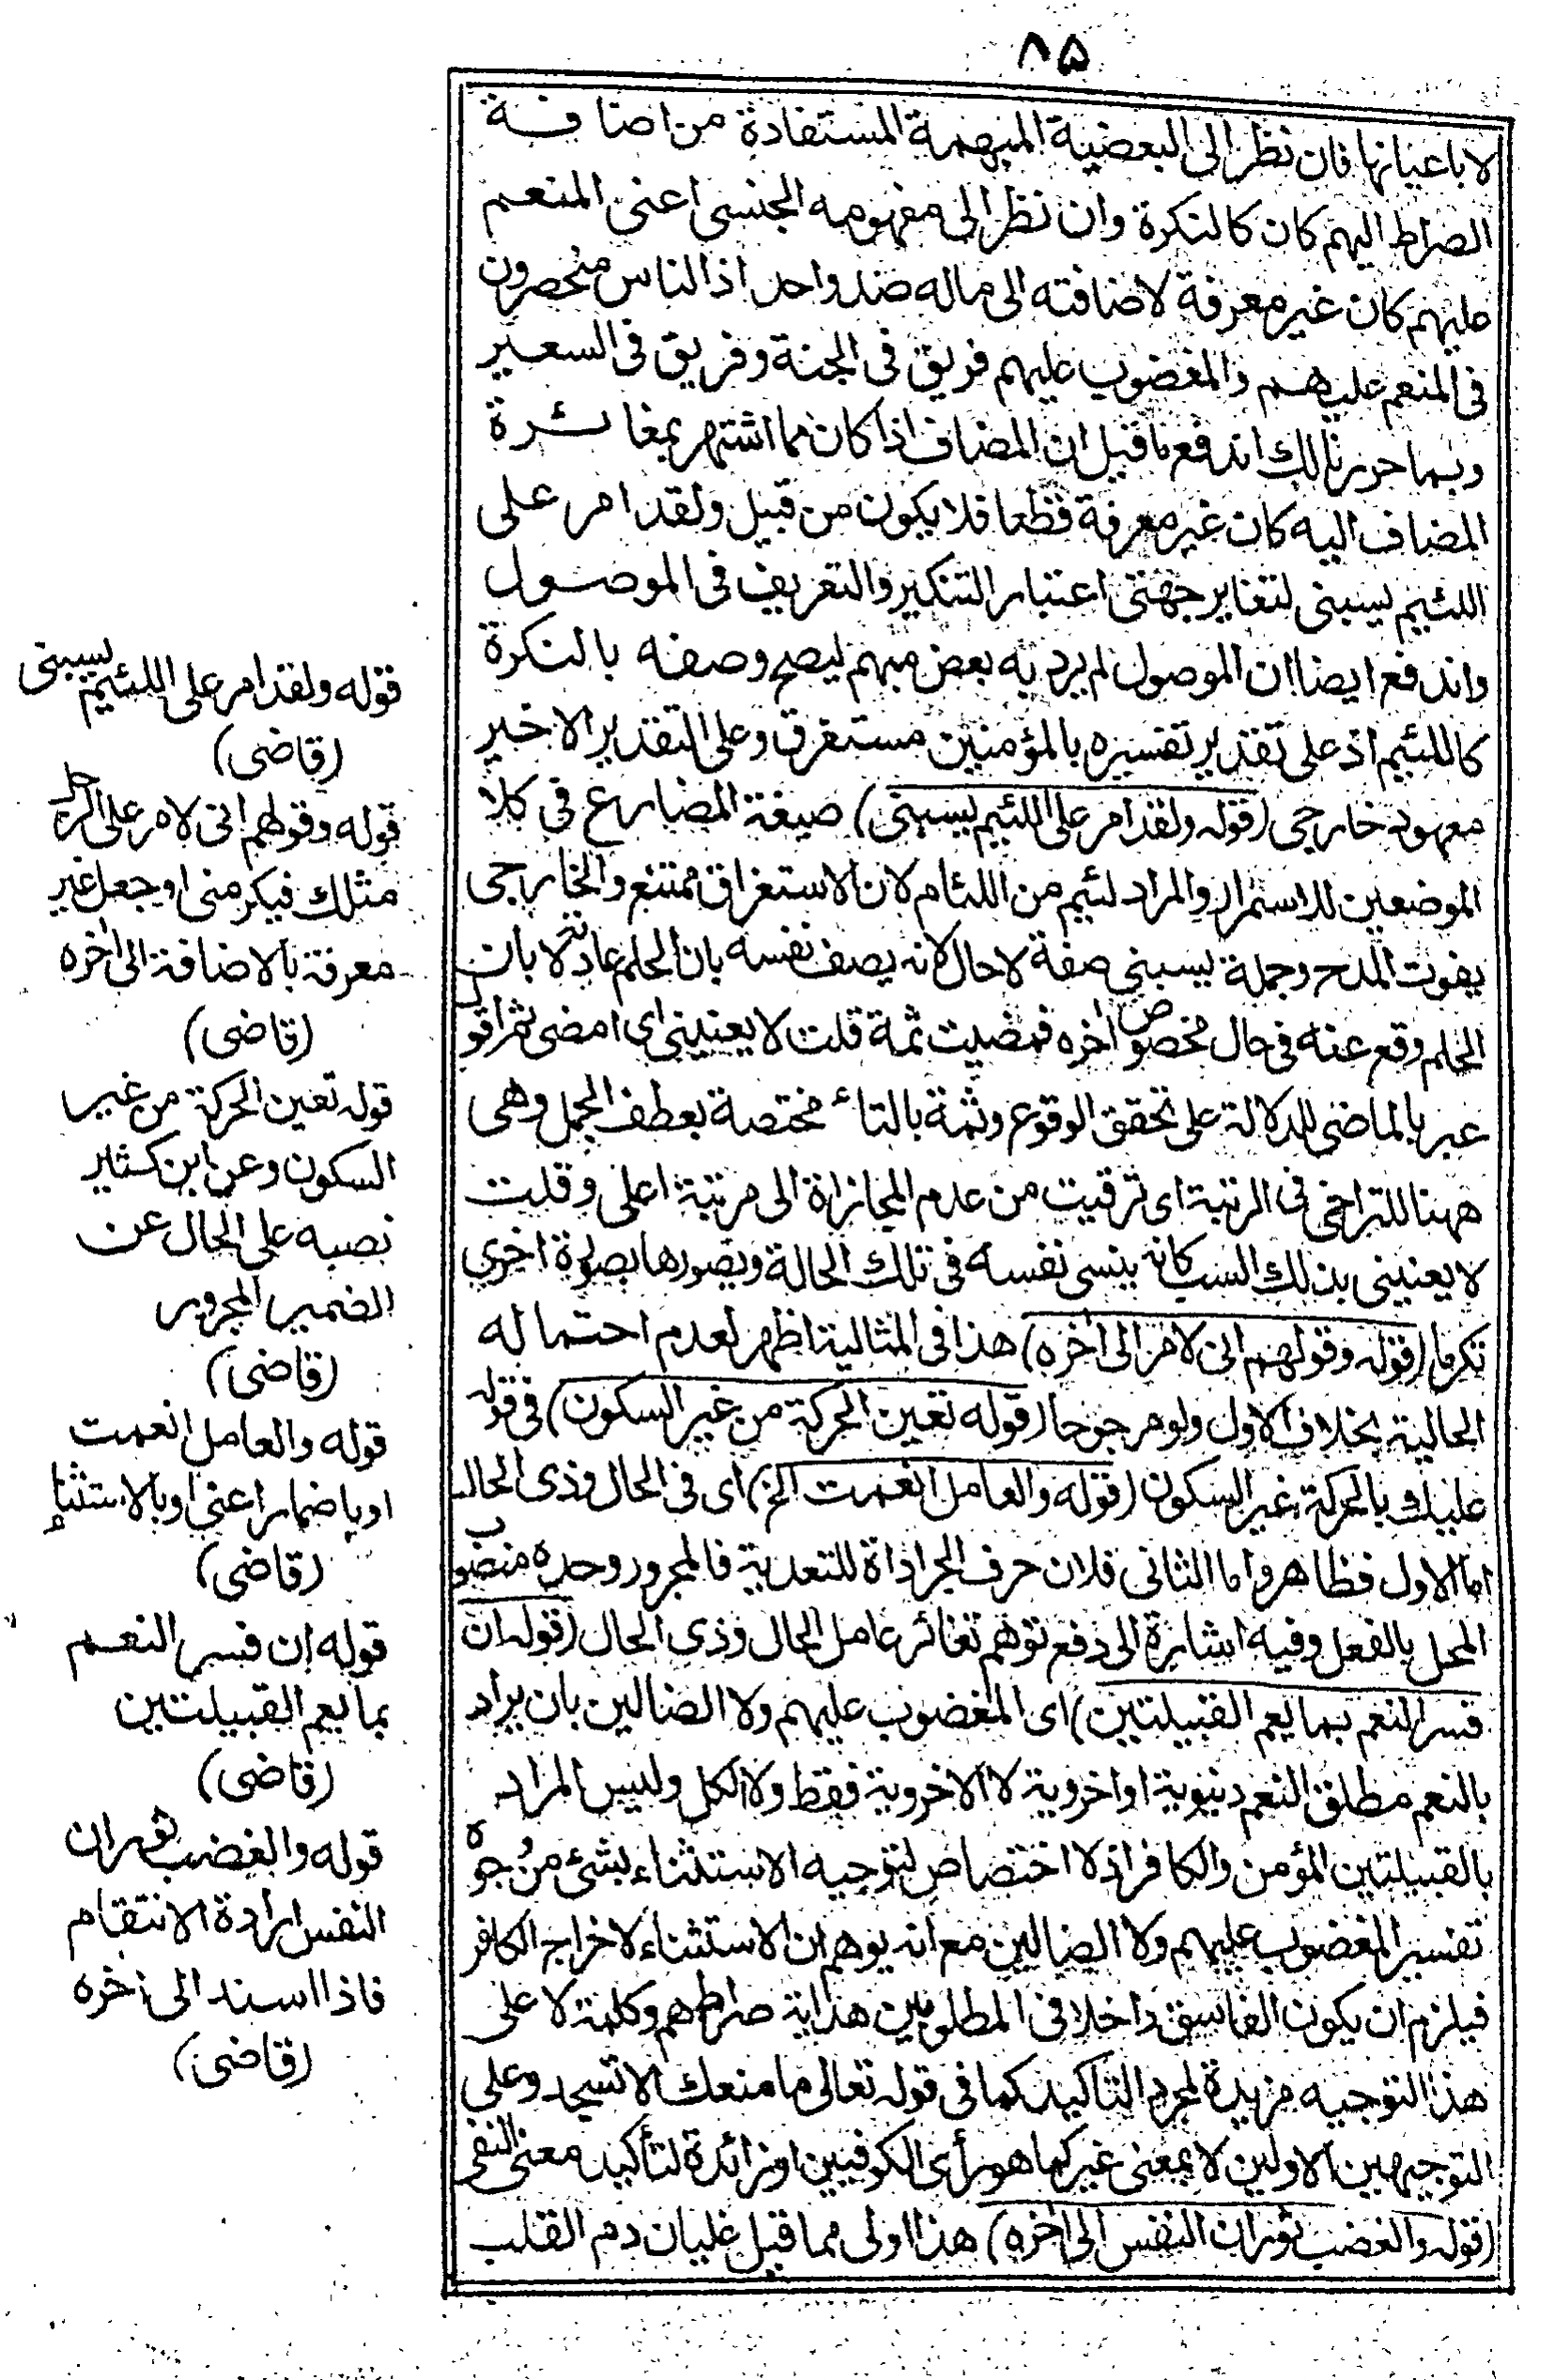 ٨۵
لا باعيانها فان نظر الى البعضية المبهمة المستفادة من اضافة
الصراط اليهم كان كالنكرة وان نظر الى مفهومه الجنسى اعنى المنعم
عليهم كان غير معرفة لاضافته الى ماله ضد واحد اذ الناس منحصرون
فى المنعم عليهم والمغضوب عليهم فريق فى الجنة وفريق فى السعير
وبما حررنا لك اندفع ما قيل ان المضاف اذا كان مما اشتهر بمغائرة
المضاف اليه كان غير معرفة قطعا فلا يكون من قبيل ولقد امر على
اللئيم يسبنى لتغاير جهتى اعتبار التنكير والتعريف فى الموصول
واندفع ايضا ان الموصول لم يرد به بعض مبهم ليصح وصفه بالنكرة
كاللئيم اذ على تقدير تفسيره بالمؤمنين مستغرق وعلى التقدير الاخير
معهود خارجى (قوله ولقد امر على اللئيم يسبنى) صيغة المضارع فى كلا
الموضعين للاستمرار والمراد لئيم من اللئام لان الاستغراق ممتنع والخارجى
يفوت المدح وجملة يسبنى صفة لا حال لانه يصف نفسه بان الحلم عادته لا بان
الحلم وقع عنه فى حال مخصوص اخره فمضيت ثمة قلت لا يعنينى اى امضى ثم اقول
عبر بالماضى للدلالة على تحقق الوقوع وثمة بالتاء مختصة بعطف الجمل وهى
ههنا للتراخى فى الرتبة اى ترقيت من عدم المجازاة الى مرتبة اعلى وقلت
لا يعنينى بذلك السب كانه ينسى نفسه فى تلك الحالة ويصورها بصورة اخرى
تكرما (قوله وقولهم انى لامر الى اخره) هذا فى المثالية اظهر لعدم احتماله
الحالية بخلاف الاول ولو مرجوحا (قوله تعين الحركة من غير السكون) فى قوله
عليك بالحركة غير السكون (قوله والعامل انعمت الخ) اى فى الحال وذى الحال
اما الاول فظاهر واما الثانى فلان حرف الجر اداة للتعدية فالمجرور وحده منصوب
المحل بالفعل وفيه اشارة الى دفع توهم تغائر عامل الحال وذى الحال (قوله ان
فسر النعم بما يعم القبيلتين) اى المغضوب عليهم ولا الضالين بان يراد
بالنعم مطلق النعم دنيوية او اخروية لا الاخروية فقط ولا الكل وليس المراد
بالقبيلتين المؤمن والكافر اذ لا اختصاص لتوجيه الاستثناء بشئ من وجوه
تفسير المغضوب عليهم ولا الضالين مع انه يوهم ان الاستثناء لاخراج الكافر
فيلزم ان يكون الفاسق داخلا فى المطلوبين هداية صراطهم وكلمة لا على
هذا التوجيه مزيدة لمجرد التاكيد كما فى قوله تعالى ما منعك الا تسجد وعلى
التوجيهين الاولين لا بمعنى غير كما هو رأى الكوفيين او زائدة لتأكيد معنى النفى
(قوله والغضب ثوران النفس الى اخره) هذا اولى مما قيل غليان دم القلب
قوله ولقد امر على اللئيم يسبنى
(قاضى)
قوله وقولهم انى لامر على الرجل
مثلك فيكرمنى او جعل غير
معرفة بالاضافة الى اخره
(قاضى)
قوله تعين الحركة من غير
السكون وعن ابن كثير
نصبه على الحال عن
الضمير المجرور
(قاضى)
قوله والعامل انعمت
او باضمار اعنى او بالاستثناء
(قاضى)
قوله ان فسر النعم
بما يعم القبيلتين
(قاضى)
قوله والغضب ثوران
النفس ارادة الانتقام
فاذا اسند الى اخره
(قاضى)